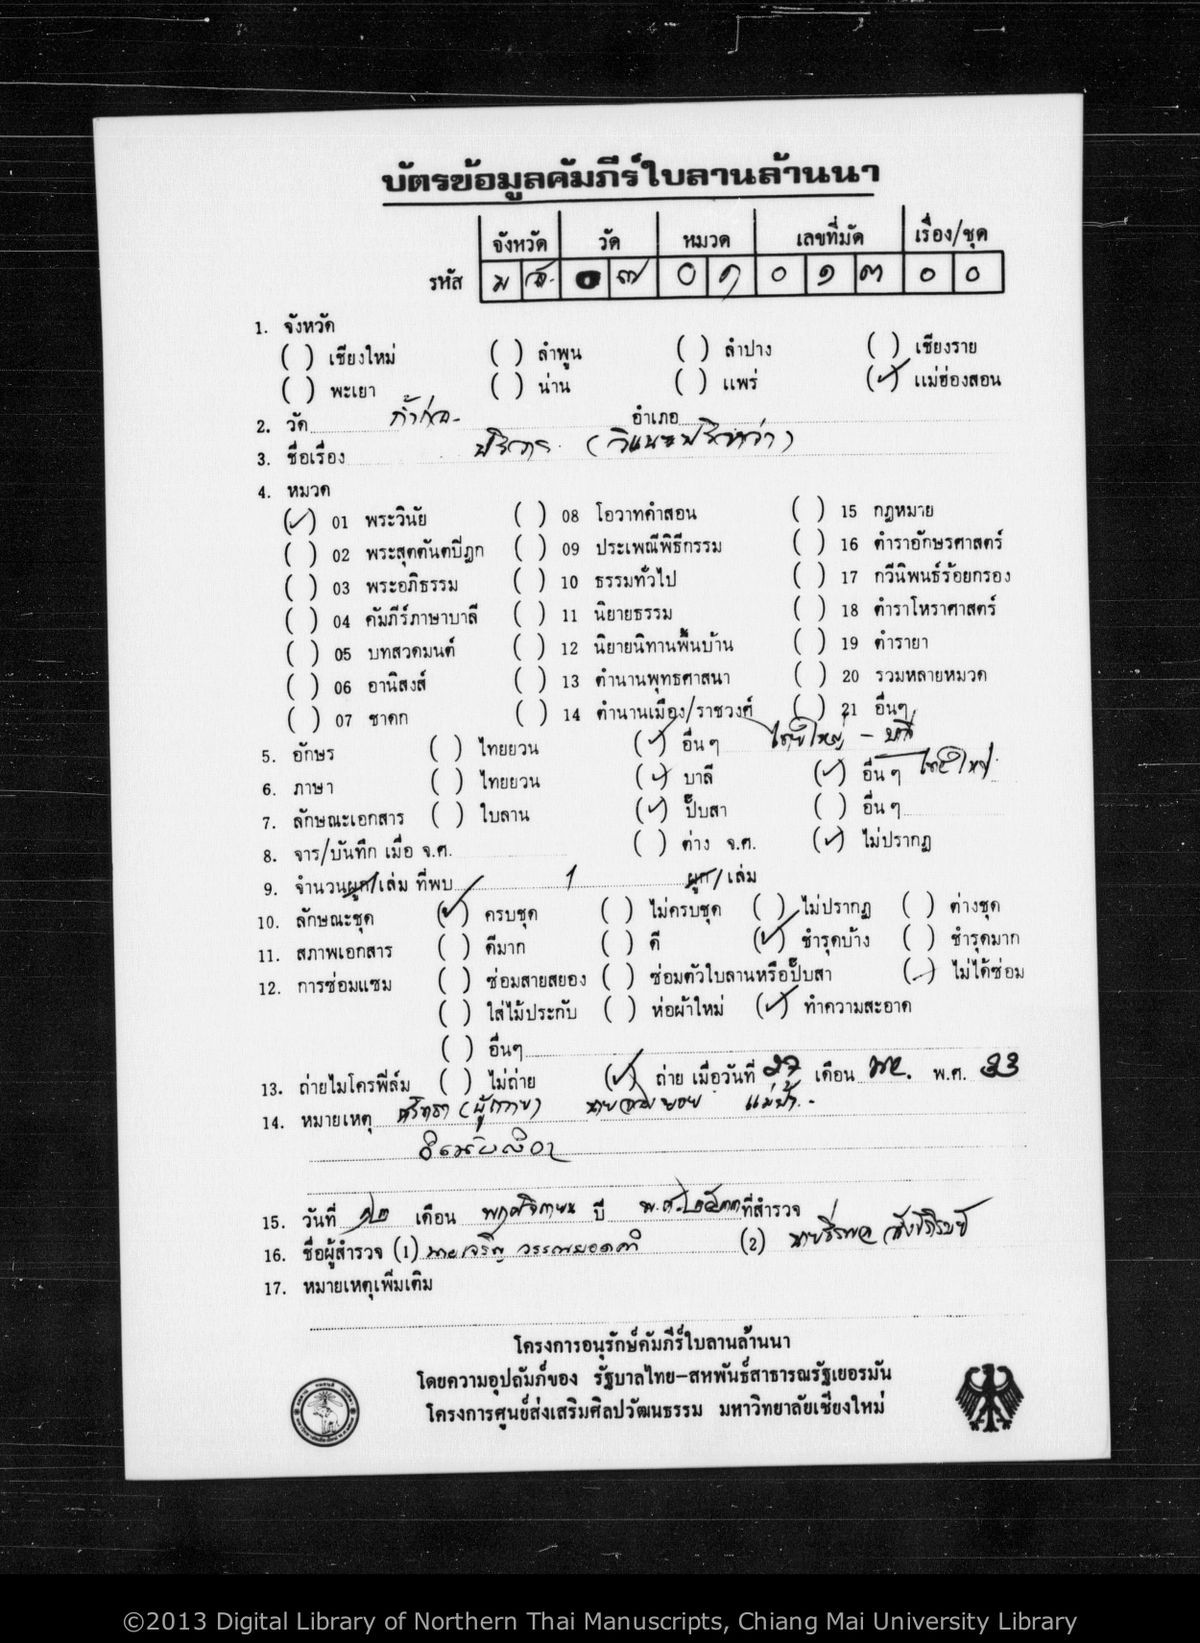 บัตรข้อมูลคัมภีร์ใบลานล้านนา
จังหวัด วัด หมวด เลขที่มัด เรื่อง/ชุด
รหัส ๐ ๗ ๐ ๑ ๐ ๑ ๓ ๐ ๐
1. จังหวัด
( ) เชียงใหม่ ( ) ลำพูน ( ) ลำปาง ( ) เชียงราย
( ) พะเยา ( ) น่าน ( ) แพร่ (✓) แม่ฮ่องสอน
2. วัด ก้ำก่อ อำเภอ
3. ชื่อเรื่อง ปริวาร
4. หมวด
(✓) 01 พระวินัย ( ) 08 โอวาทคำสอน ( ) 15 กฎหมาย
( ) 02 พระสุตตันตปิฎก ( ) 09 ประเพณีพิธีกรรม ( ) 16 ตำราอักษรศาสตร์
( ) 03 พระอภิธรรม ( ) 10 ธรรมทั่วไป ( ) 17 กวีนิพนธ์ร้อยกรอง
( ) 04 คัมภีร์ภาษาบาลี ( ) 11 นิยายธรรม ( ) 18 ตำราโหราศาสตร์
( ) 05 บทสวดมนต์ ( ) 12 นิยายนิทานพื้นบ้าน ( ) 19 ตำรายา
( ) 06 อานิสงส์ ( ) 13 ตำนานพุทธศาสนา ( ) 20 รวมหลายหมวด
( ) 07 ชาดก ( ) 14 ตำนานเมือง/ราชวงศ์ ( ) 21 อื่นๆ
5. อักษร ( ) ไทยยวน (✓) อื่นๆ ไทยใหญ่ - บาลี
6. ภาษา ( ) ไทยยวน (✓) บาลี (✓) อื่นๆ ไทยใหญ่
7. ลักษณะเอกสาร ( ) ใบลาน (✓) ปั๊บสา ( ) อื่นๆ
8. จาร/บันทึก เมื่อ จ.ศ. ( ) ต่าง จ.ศ. (✓) ไม่ปรากฏ
9. จำนวนผูก/เล่ม ที่พบ 1 ผูก/เล่ม
10. ลักษณะชุด (✓) ครบชุด ( ) ไม่ครบชุด ( ) ไม่ปรากฏ ( ) ต่างชุด
11. สภาพเอกสาร ( ) ดีมาก ( ) ดี (✓) ชำรุดบ้าง ( ) ชำรุดมาก
12. การซ่อมแซม ( ) ซ่อมสายสยอง ( ) ซ่อมตัวใบลานหรือปั๊บสา (✓) ไม่ได้ซ่อม
( ) ใส่ไม้ประกับ ( ) ห่อผ้าใหม่ (✓) ทำความสะอาด
( ) อื่นๆ
13. ถ่ายไมโครฟิล์ม ( ) ไม่ถ่าย (✓) ถ่าย เมื่อวันที่ 27 เดือน พย. พ.ศ. 33
14. หมายเหตุ ศรัทธา (ผู้ถวาย)
15. วันที่ ๑๒ เดือน พฤศจิกายน ปี พ.ศ. ๒๕๓๓ ที่สำรวจ
16. ชื่อผู้สำรวจ (1) นายเจริญ (2)
17. หมายเหตุเพิ่มเติม
โครงการอนุรักษ์คัมภีร์ใบลานล้านนา
โดยความอุปถัมภ์ของ รัฐบาลไทย-สหพันธ์สาธารณรัฐเยอรมัน
โครงการศูนย์ส่งเสริมศิลปวัฒนธรรม มหาวิทยาลัยเชียงใหม่
©2013 Digital Library of Northern Thai Manuscripts, Chiang Mai University Library